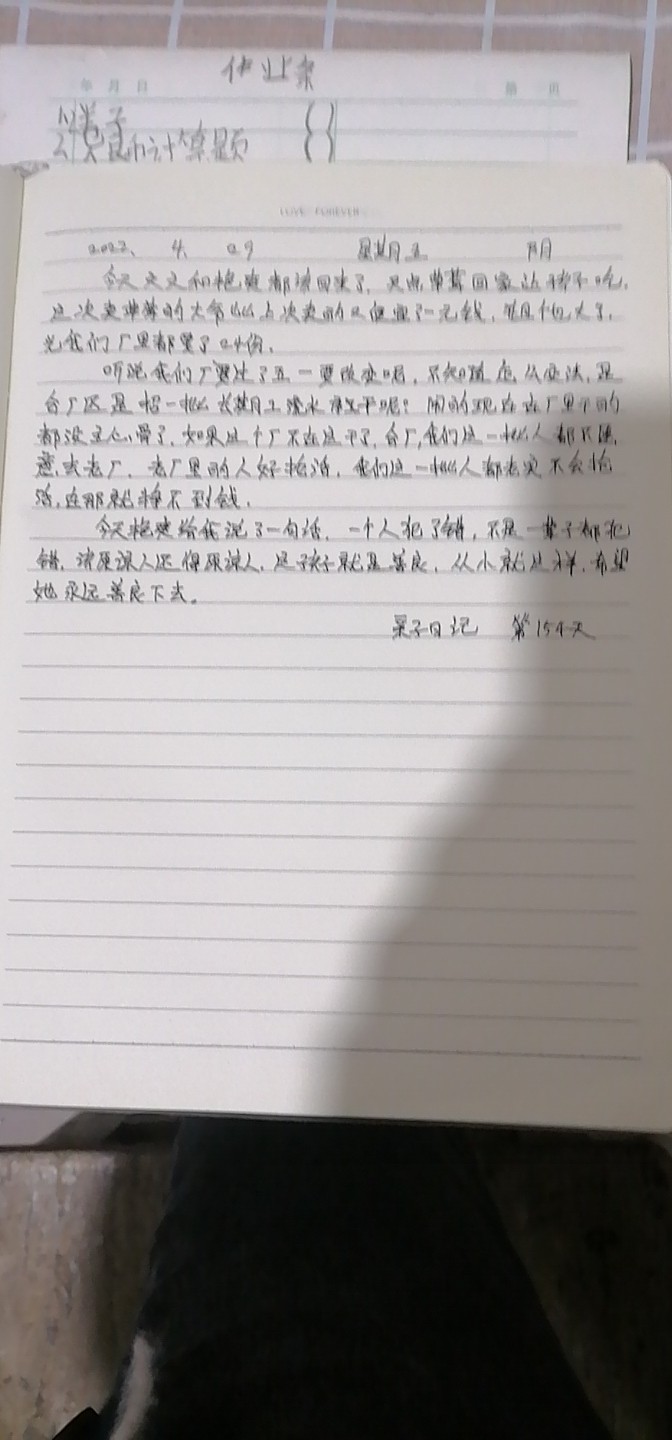 作业条
年 月 日 第 页
1、半子
2、人民币计算题
LOVE FOREVER
2022、 4、 29 星期五 阴
今天文文和艳爽都没回来了，又点草莓回家达得不吃，
这次卖草莓的大爷比上次卖的又便宜了一元钱，并且个也大了，
光我们厂里都买了24份。
听说我们厂要过了五一要改变呢，不知道怎么变法，是
合厂还是招一批长期工流水线干呢？闹的现在在厂里干的
都没主心骨了，如果这个厂不在这干了，合厂，我们这一批人都不愿
意去老厂，老厂里的人好抢活，我们这一批人都老实不会抢
活，在那就挣不到钱。
今天艳爽给我说了一句话，一个人犯了错，不是一辈子都犯
错，该原谅人还得原谅人，这孩子就是善良，从小就这样，希望
她永远善良下去。
日记 第154天